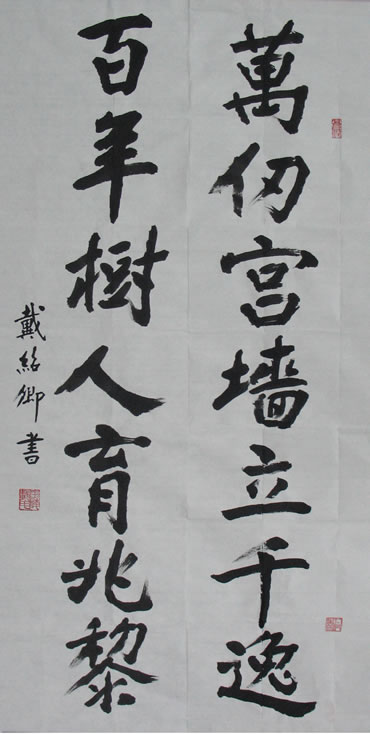 萬仞宫墙立千逸
百年樹人育兆黎
戴紹卿書